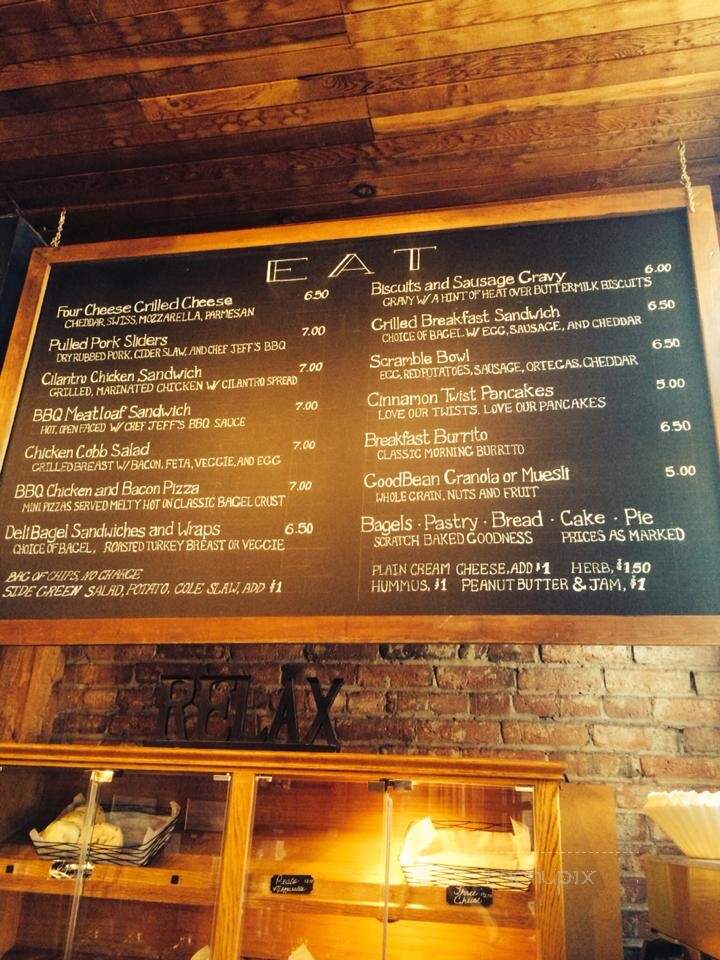 EAT
Four Cheese Grilled Cheese 6.50
CHEDDAR, SWISS, MOZZARELLA, PARMESAN
Pulled Pork Sliders 7.00
DRY RUBBED PORK, CIDER SLAW, AND CHEF JEFF'S BBQ
Cilantro Chicken Sandwich 7.00
GRILLED, MARINATED CHICKEN W/ CILANTRO SPREAD
BBQ Meatloaf Sandwich 7.00
HOT, OPEN FACED W/ CHEF JEFF'S BBQ SAUCE
Chicken Cobb Salad 7.00
GRILLED BREAST W/ BACON, FETA, VEGGIE, AND EGG
BBQ Chicken and Bacon Pizza 7.00
MINI PIZZAS SERVED MELTY HOT ON CLASSIC BAGEL CRUST
Deli Bagel Sandwiches and Wraps 6.50
CHOICE OF BAGEL, ROASTED TURKEY BREAST OR VEGGIE
BAG OF CHIPS, NO CHARGE
SIDE GREEN SALAD, POTATO, COLE SLAW, ADD $1
Biscuits and Sausage Gravy 6.00
GRAVY W/ A HINT OF HEAT OVER BUTTERMILK BISCUITS
Grilled Breakfast Sandwich 6.50
CHOICE OF BAGEL W/ EGG, SAUSAGE, AND CHEDDAR
Scramble Bowl 6.50
EGG, RED POTATOES, SAUSAGE, ORTEGAS, CHEDDAR
Cinnamon Twist Pancakes 5.00
LOVE OUR TWISTS, LOVE OUR PANCAKES
Breakfast Burrito 6.50
CLASSIC MORNING BURRITO
GoodBean Granola or Muesli 5.00
WHOLE GRAIN, NUTS AND FRUIT
Bagels · Pastry · Bread · Cake · Pie
SCRATCH BAKED GOODNESS PRICES AS MARKED
PLAIN CREAM CHEESE, ADD $1 HERB, $1.50
HUMMUS, $1 PEANUT BUTTER & JAM, $1
RELAX
Three
Cheese